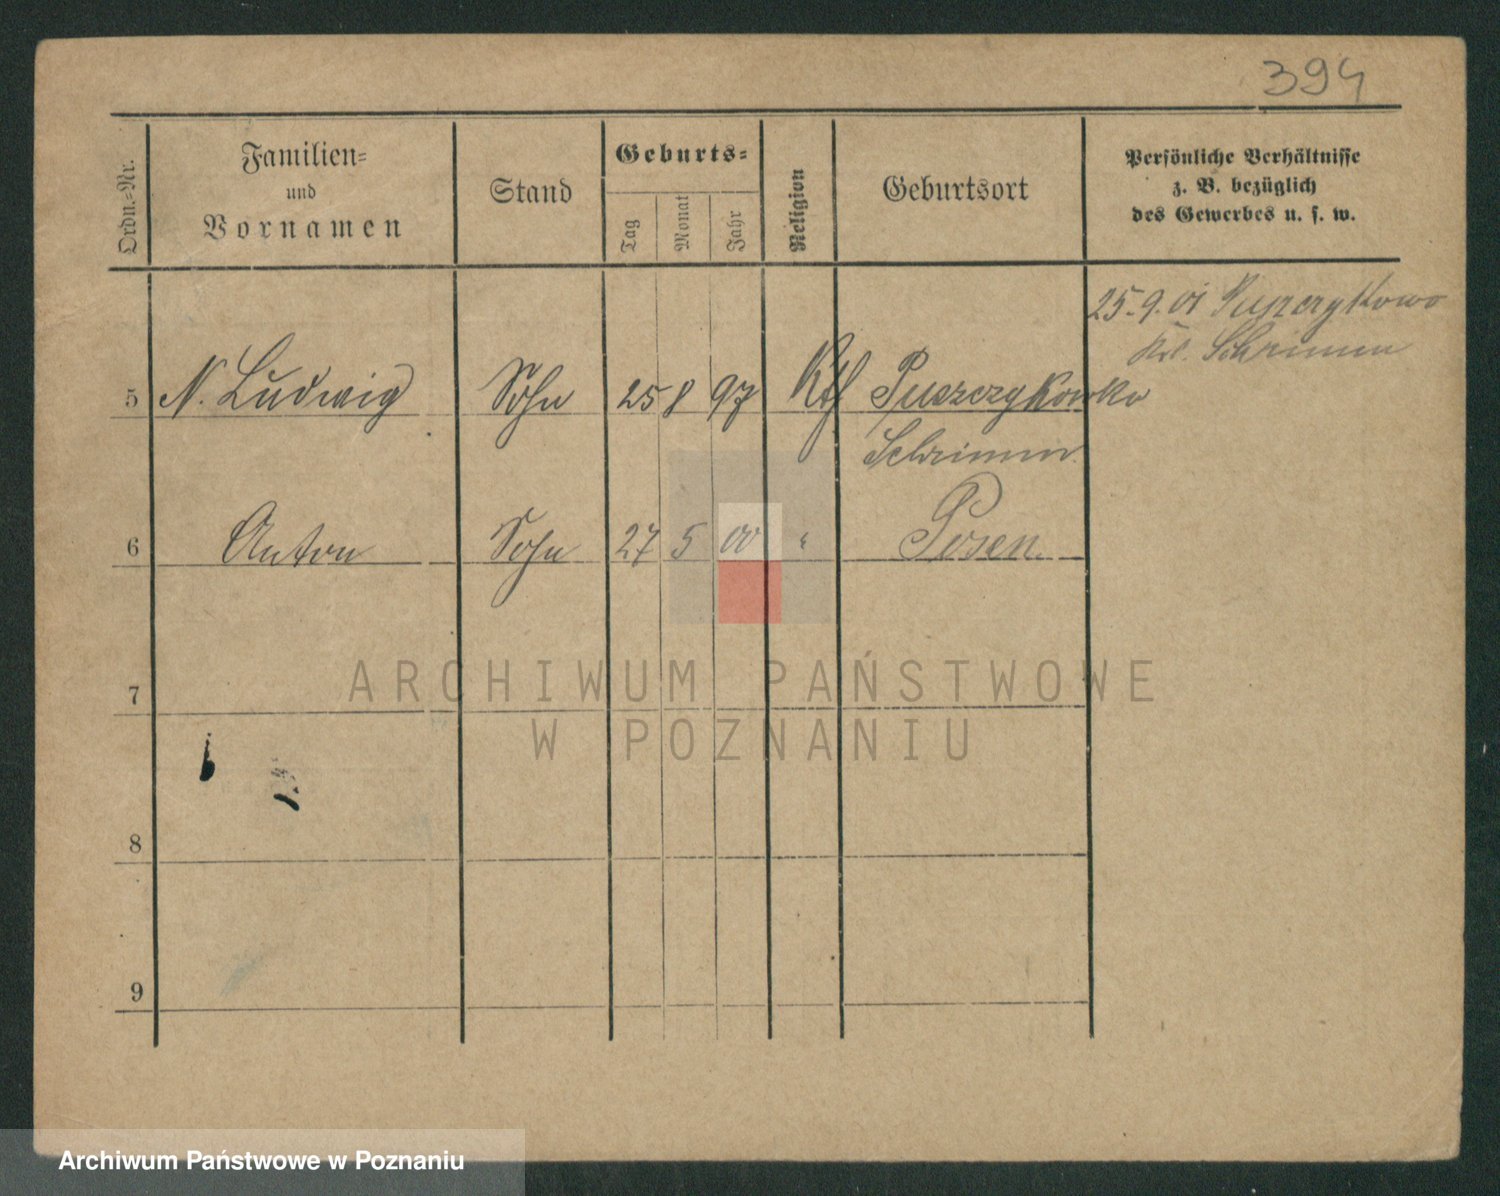 394
Ordn.-Nr.
Familien-
und
Vornamen
Stand
Geburts-
Tag
Monat
Jahr
Religion
Geburtsort
Persönliche Verhältnisse
z. B. bezüglich
des Gewerbes u. s. w.
25.9.01 Puszczykowo
Krs. Schrimm
5 N. Ludwig Sohn 25 8 97 Kth Puszczykowko
Schrimm
6 Anton Sohn 27 5 00 " Posen
7
8
9
ARCHIWUM PAŃSTWOWE
W POZNANIU
Archiwum Państwowe w Poznaniu